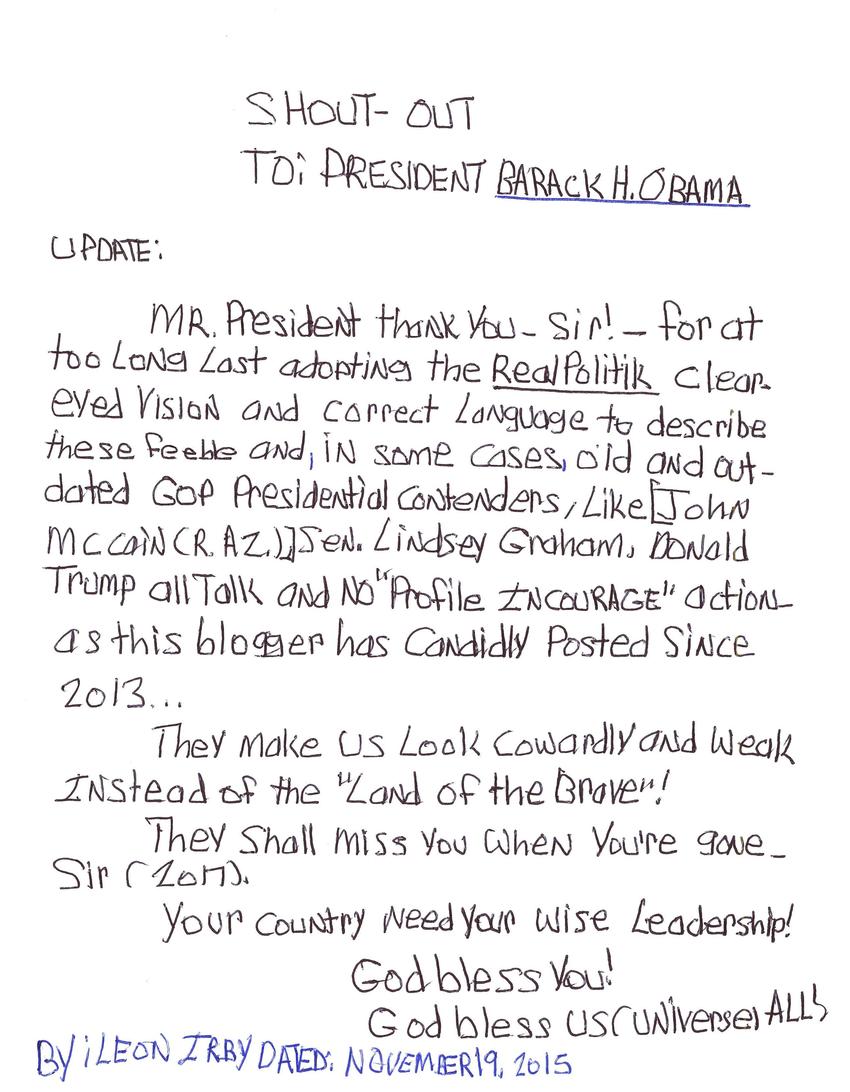 SHOUT- OUT
TO: PRESIDENT BARACK H. OBAMA
UPDATE:
MR. President thank You - Sir! - for at
too Long Last adopting the RealPolitik clear-
eyed Vision and correct Language to describe
these feeble and, in some cases, old and out-
dated GOP Presidential Contenders, Like [John
McCain (R. AZ.)] Sen. Lindsey Graham, Donald
Trump all Talk and No "Profile INCOURAGE" action-
as this blogger has Candidly Posted Since
2013...
They make us Look Cowardly and Weak
Instead of the "Land of the Brave"!
They Shall miss You When You're gone -
Sir (2017).
Your Country Need Your Wise Leadership!
God bless You!
God bless US (UNiverse) ALL!
BY: LEON IRBY DATED: NOVEMBER 19, 2015